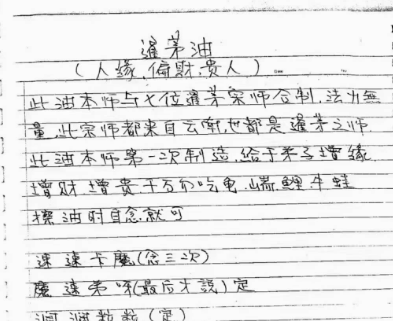 暹茅油
(人缘.偏财.贵人)
此油本师与七位暹茅宗师合制.法力無
量.此宗师都来自云南.也都是暹茅之师.
此油本师第一次制造.给于来了增缘
增财增贵千万勿吃龟.鯉.牛蛙
擦油时自念就可
速速卡魔(念三次)
魔速弟(最后才說)定